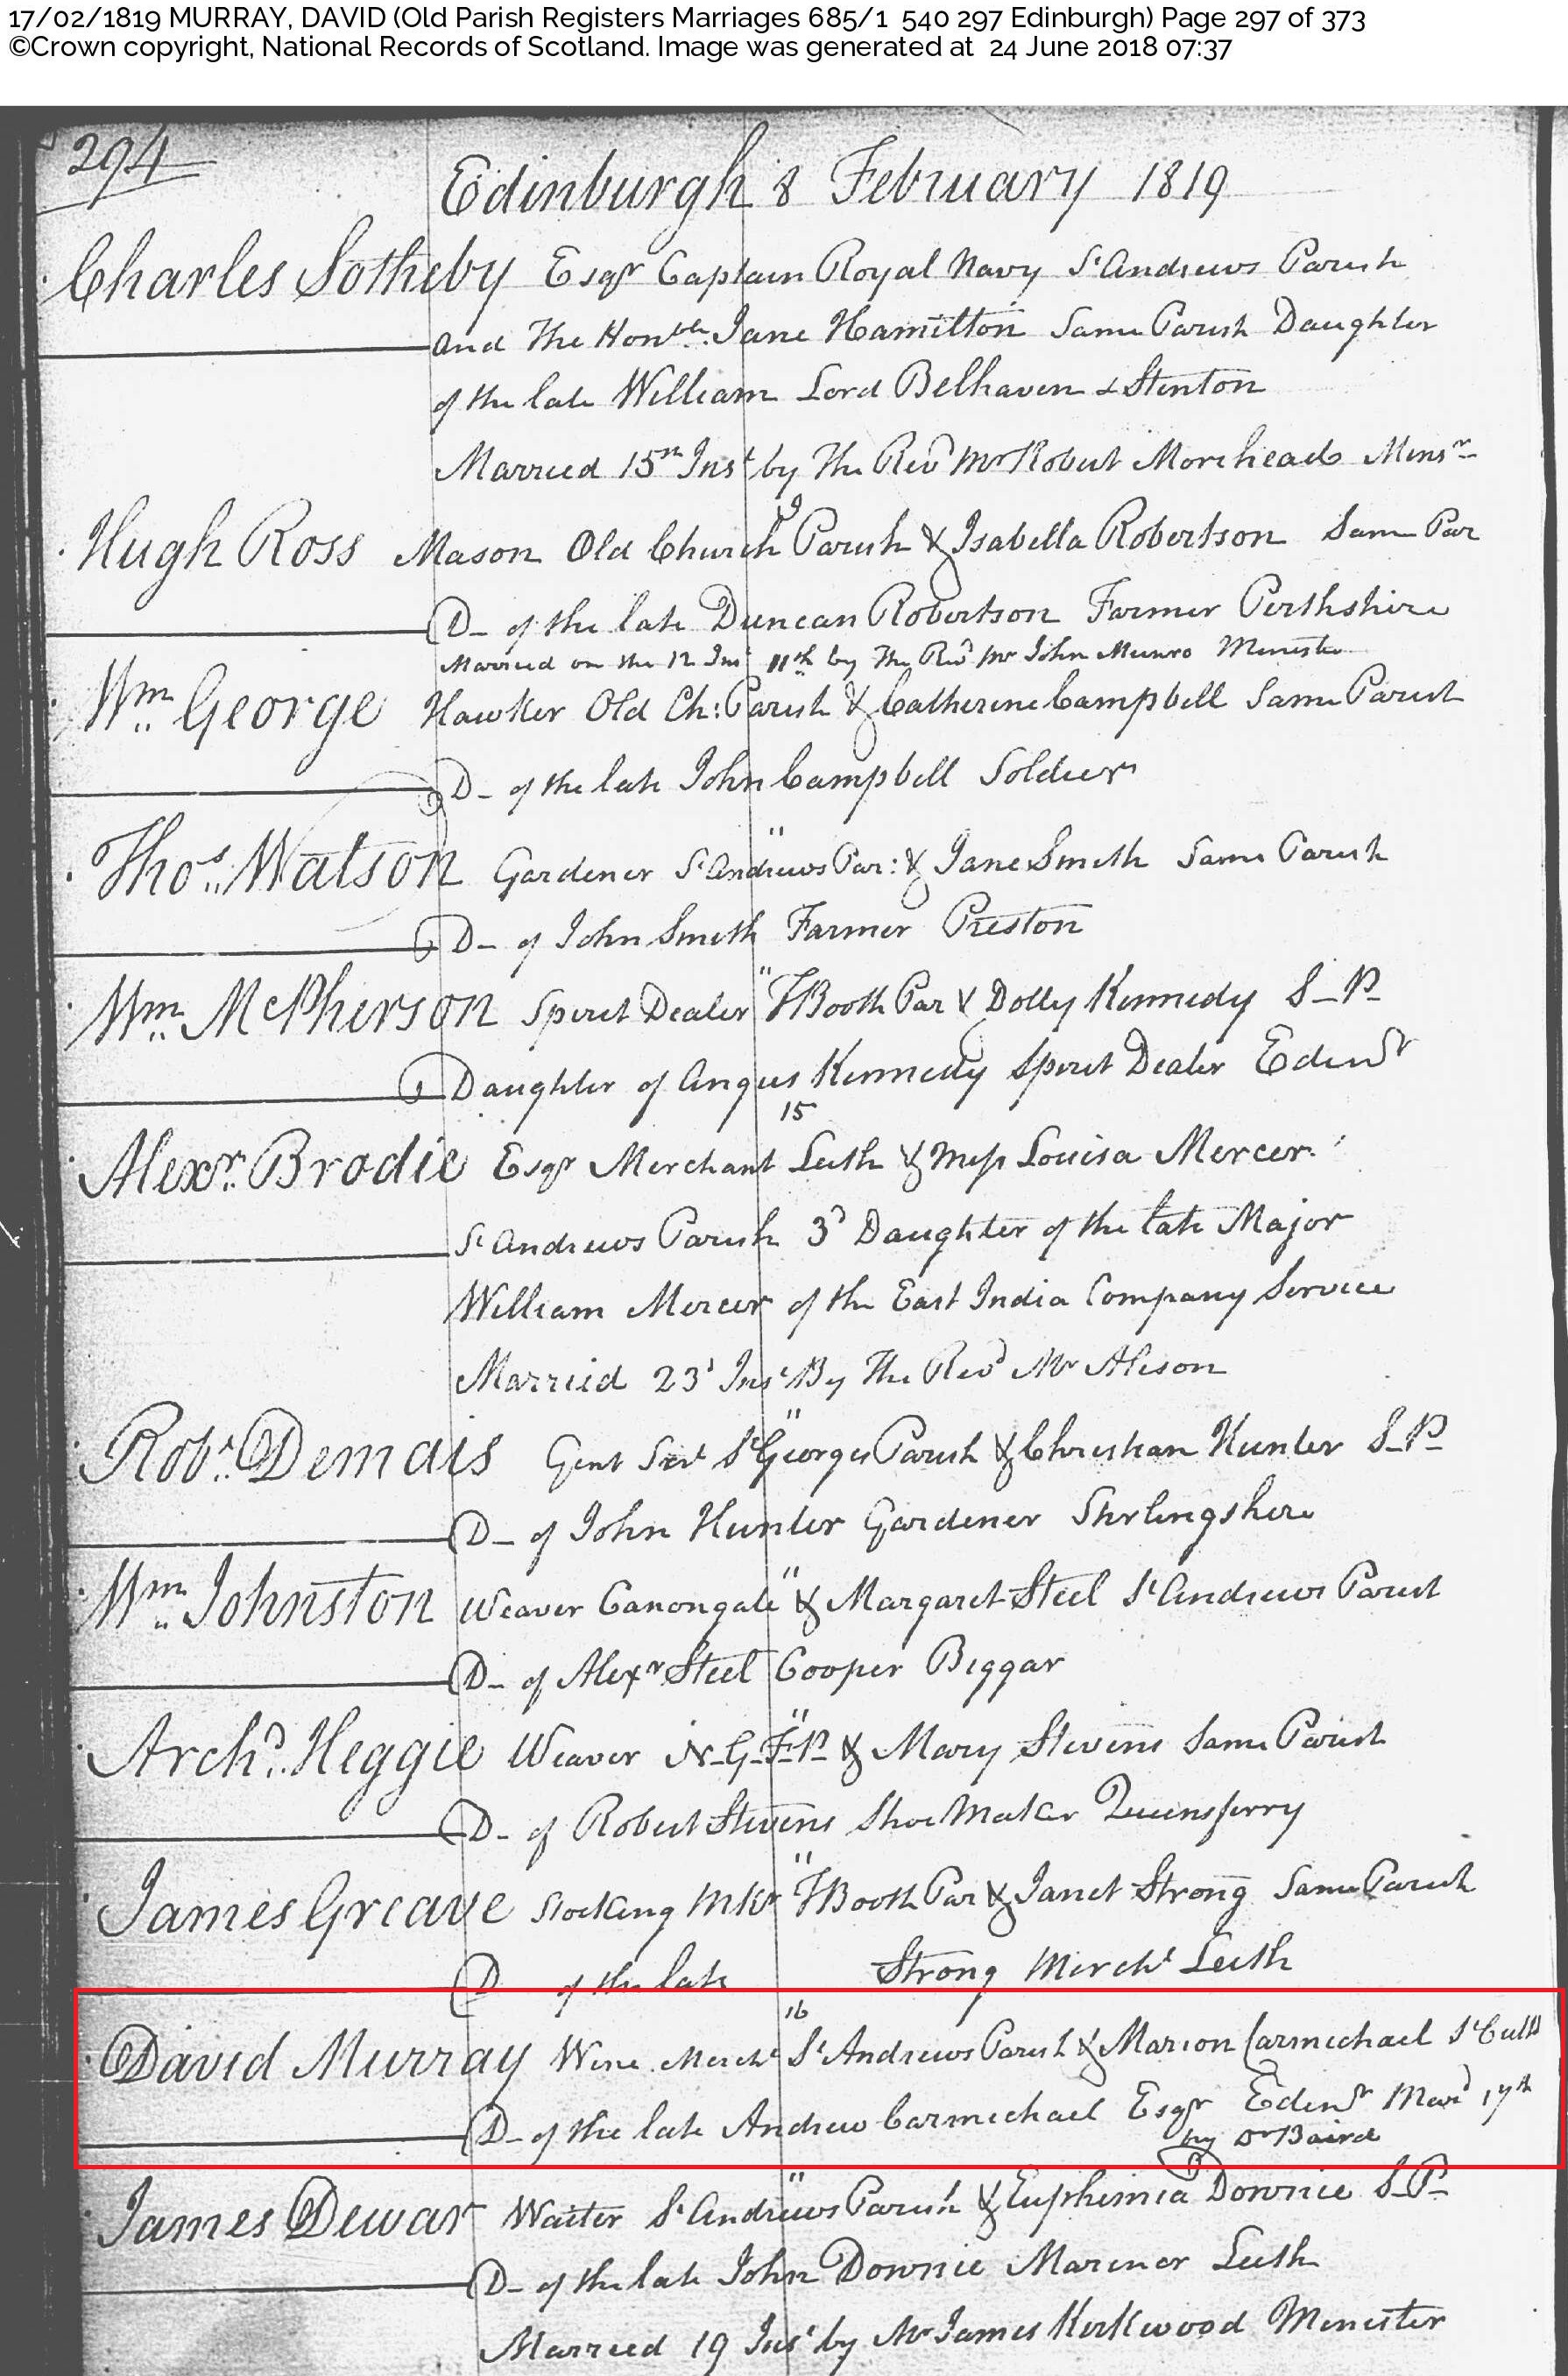 17/02/1819 MURRAY, DAVID (Old Parish Registers Marriages 685/1 540 297 Edinburgh) Page 297 of 373
©Crown copyright, National Records of Scotland. Image was generated at 24 June 2018 07:37
294
Edinburgh 8 February 1819
Charles Sotheby Esqr Captain Royal Navy St Andrews Parish
and The Honble. Jane Hamilton Same Parish Daughter
of the late William Lord Belhaven & Stenton
Married 15th Inst by The Revd Mr Robert Morehead Minsr
9
Hugh Ross Mason Old Church Parish & Isabella Robertson Same Par
D- of the late Duncan Robertson Farmer Perthshire
Married on the 12 Inst 11th by The Revd Mr John Munro Minister
Wm George Hawker Old Ch: Parish & Catherine Campbell Same Parish
D- of the late John Campbell Soldier
"
Thos. Watson Gardener St Andrews Par: & Jane Smith Same Parish
D- of John Smith Farmer Preston
"
Wm McPherson Spirit Dealer TBooth Par & Dolly Kennedy S-P-
Daughter of Angus Kennedy Spirit Dealer Edinr
15
Alexr. Brodie Esqr Merchant Leith & Miss Louisa Mercer
St Andrews Parish 3d Daughter of the late Major
William Mercer of the East India Company Service
Married 23d Inst By The Revd Mr Alison
"
Robt. Demais Gent Servt St Georges Parish & Christian Hunter S-P-
D- of John Hunter Gardener Stirlingshire
"
Wm Johnston Weaver Canongate & Margaret Steel St Andrews Parish
D- of Alexr Steel Cooper Biggar
"
Archd. Heggie Weaver N-G-F-P- & Mary Stevens Same Parish
D- of Robert Stevens Shoe Maker Queensferry
"
James Greave Stocking Mkr TBooth Par & Janet Strong Same Parish
D of the late Strong Mercht Leith
16
David Murray Wine Mercht St Andrews Parish & Marion Carmichael St Cuthts
D- of the late Andrew Carmichael Esqr Edinr Mard 17th
by Dr Baird
"
James Dewar Waiter St Andrews Parish & Euphemia Downie S-P-
D- of the late John Downie Mariner Leith
Married 19 Inst by Mr James Kirkwood Minister